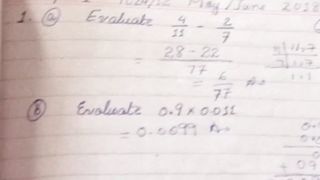 May/June 2018
1. (a) Evaluate 4/11 - 2/7
= 28-22/77
= 6/77 Ans
(b) Evaluate 0.9 x 0.011
= 0.0099 Ans